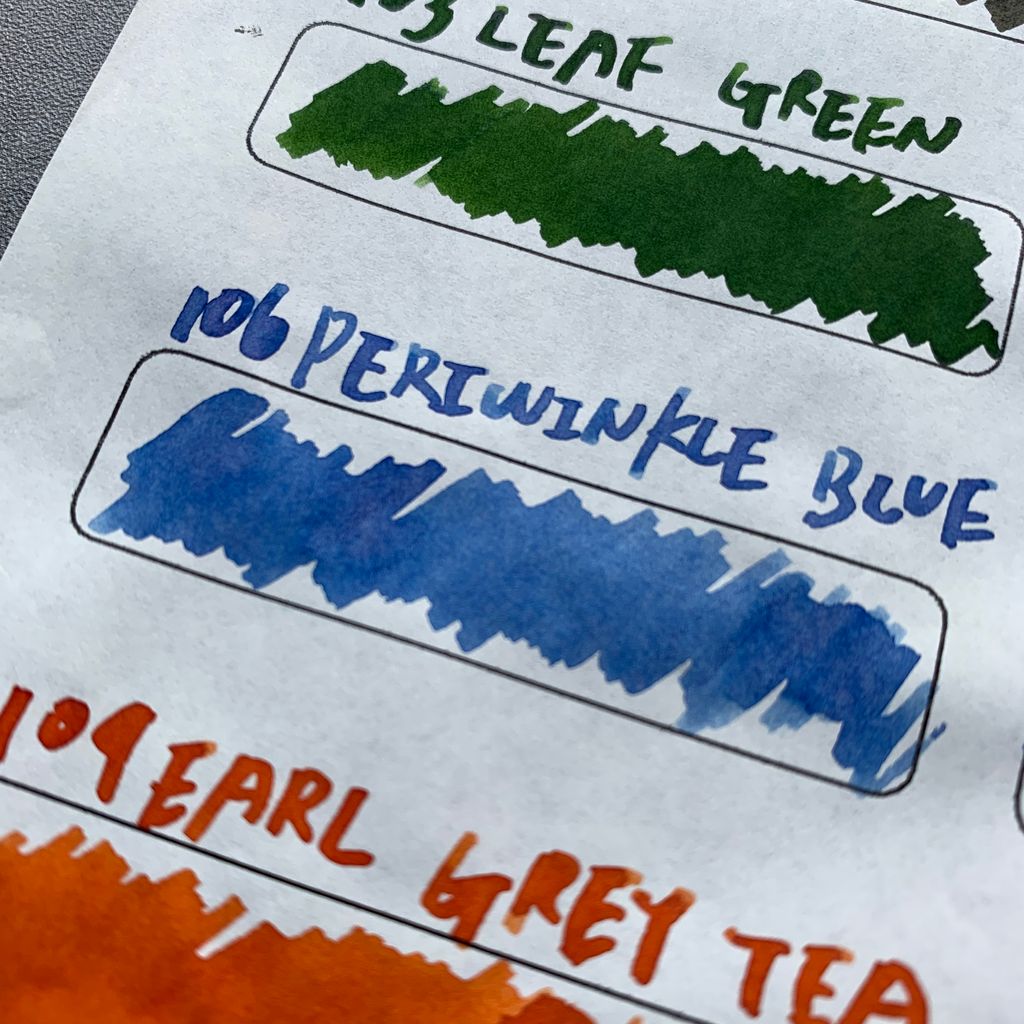 LEAF GREEN
106 PERIWINKLE BLUE
109 EARL GREY TEA